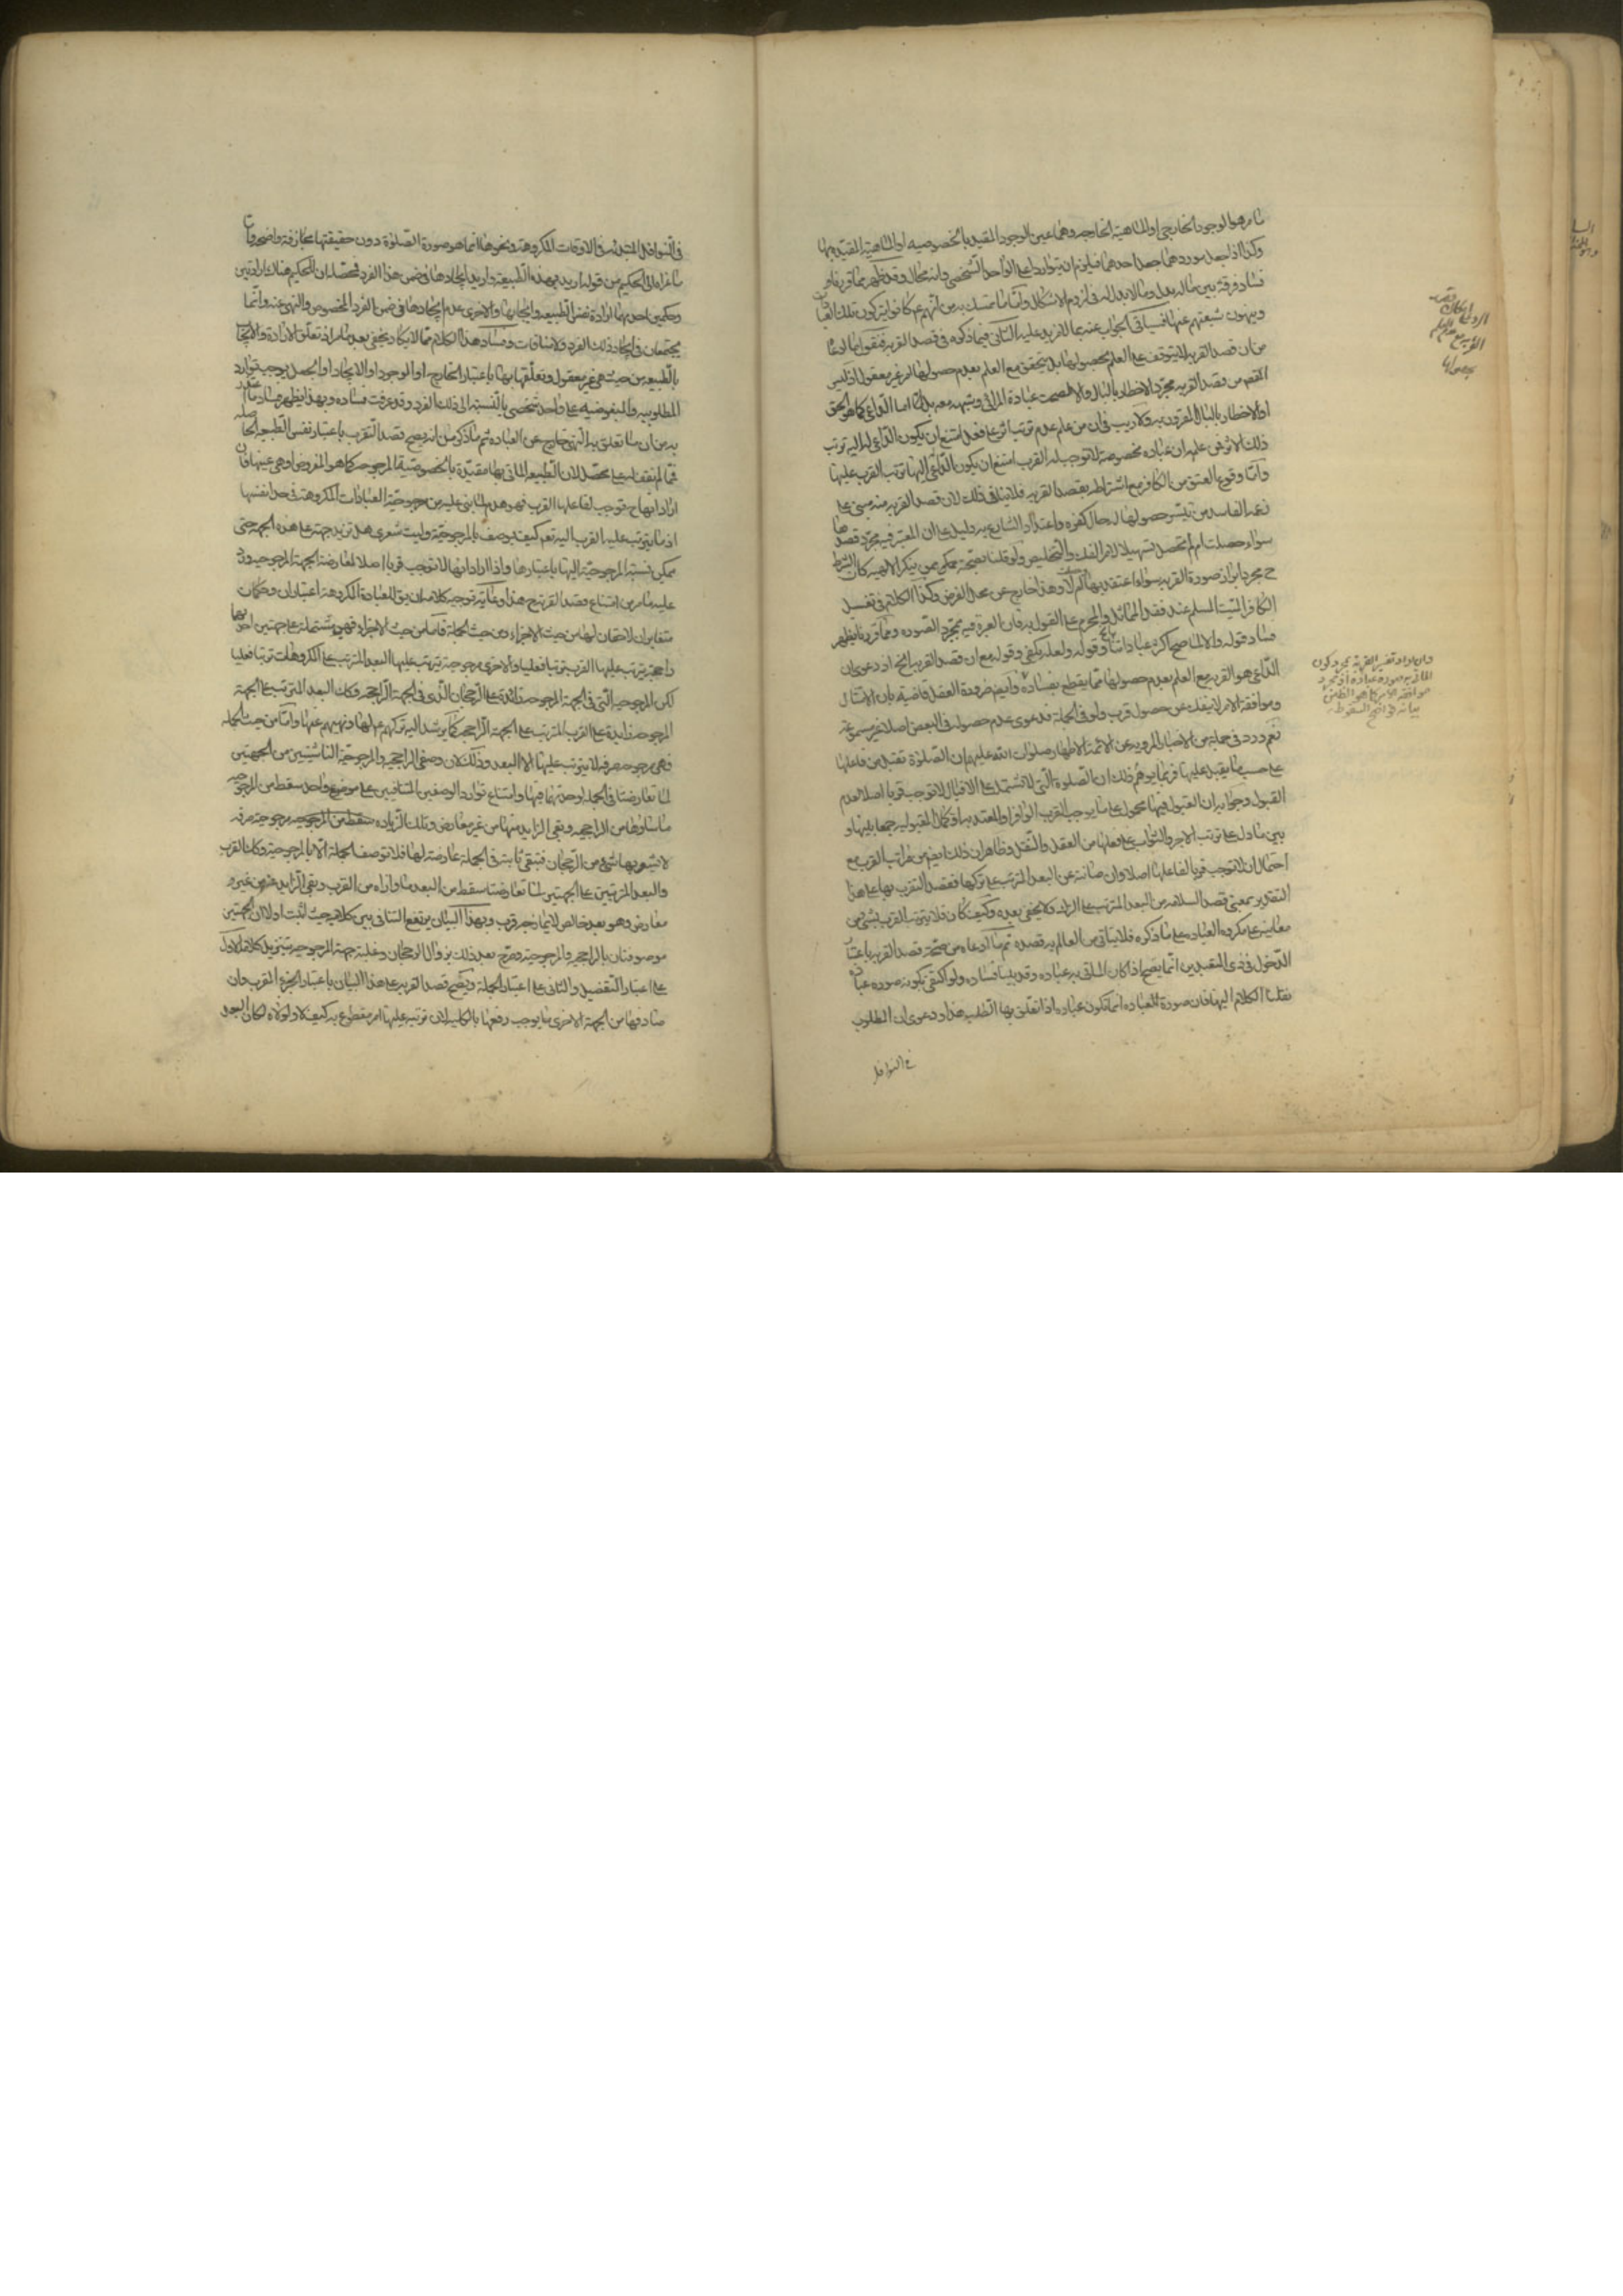 ما هو الوجود الخارجى او الماهية الخارجية وهما عين الوجود المقيد بالخصوصية او الماهية المقيد بها
وكذا اذا جعل موردهما جعل احدهما فيلزم ان يتواردا على الواحد الشخصى وانه محال وقد ظهر مما قررناه
فساد فرقه بين ماله بدل وما لا بدل له فى لزوم الاشكال واما ما تمسك به من انهم ع كانوا يتركون تلك
وينهون شيعتهم عنها فسياتى الجواب عنه بما لا مزيد عليه الثانى فيما ذكره فى قصد القربة فنقول
من ان قصد القربة لا يتوقف على العلم بحصولها بل يتحقق مع العلم بعدم حصولها امر غير معقول اذ ليس
من قصد القربة مجرد الاخطار بالبال والا لصحت عبادة المرائى وشبهه معه بل اما الداعى كما هو الحق
او الاخطار بالبال المقرون به ولا ريب فى ان من علم عدم ترتب اثر على فعل امتنع ان يكون الداعى له اليه ترتب
ذلك الاثر فمن علم ان عبادة مخصوصة لا توجب له القرب امتنع ان يكون الداعى اليها ترتب القرب عليها
واما وقوع العتق من الكافر مع اشتراطه بقصد القربة فلا ينافى ذلك لان قصد القربة منه مبنى على
زعمه الفاسد من تيسر حصولها له حال كفره واعتداد الشارع به دليل على ان المعتبر فيه مجرد قصدها
سواء حصلت ام لم تحصل تسهيلا لامر الفك والتخليص ولو قلنا بصحته ممن ينكر الالهية كان الشرط
ح مجرد ابراز صورة القربة سواء اعتقد بها ام لا وهذا خارج عن محل الفرض وكذا الكلام فى تغسيل
الكافر الميت المسلم عند فقد المماثل والمحرم على القول به فان العبرة فيه بمجرد الصورة ومما قررنا يظهر
فساد قوله والا لما صح اكثر عباداتنا وقوله ولعله يكفى وقوله مع ان قصد القربة الخ اذ دعوى ان
الداعى هو القربة مع العلم بعدم حصولها مما يقطع بفساده وايضا ضرورة العقل قاضية بان الامتثال
وموافقة الامر لا ينفك عن حصول قرب ولو فى الجملة فدعوى عدم حصوله فى البعض اصلا غير مسموعة
نعم ورد فى جملة من الاخبار المروية عن الائمة الاطهار صلوات الله عليهم ان الصلوة تقبل من فاعلها
على حسب ما يقبل عليها فربما يوهم ذلك ان الصلوة التى لا تشتمل على الاقبال لا توجب قربا اصلا لعدم
القبول وجوابه ان القبول فيها محمول على ما يوجب القرب الوافر او المعتد به او كمال المقبولية جمعا بينها و
بين ما دل على ترتب الاجر والثواب على فعلها من العقل والنقل وظاهر ان ذلك ايضا من مراتب القرب مع
احتمال ان لا توجب قربا لفاعلها اصلا وان صانته عن البعد المترتب على تركها فقصد التقرب بها على هذا
التقدير بمعنى قصد السلامة من البعد المترتب على الترك ولا يخفى بعده وكيف كان فلا يترتب القرب بشىء من
معانيه على مكروه العبادة على ما ذكره فلا يتاتى من العالم به قصده ثم ما ادعاه من صحة قصد القربة باعتبار
الدخول فى زى المتعبدين انما يصح اذا كان الماتى به عبادة وقد بينا فساده ولو اكتفى بكونه صورة عبادة
نقلنا الكلام اليها فان صورة العبادة انما تكون عبادة اذا تعلق بها الطلب هذا ودعوى ان المطلوب
فى النوافل
قصد
القربة مع عدم العلم
بحصولها
وان اراد تفسير القربة بمجرد كون
الماتى به صورة عبادة او مجرد
موافقة الامر كما هو الظاهر من
بيانه فواضح السقوط
فى النوافل المبتدئة فى الاوقات المكروهة ونحوها انما هو صورة الصلوة دون حقيقتها مجازفة واضحة وان
ما عزاه الى الحكيم من قوله اريد بهذه الطبيعة واريد ايجادها فى ضمن هذا الفرد فحصله ان للحكيم هناك ارادتين
وحكمين احدهما ارادة نفس الطبيعة وايجابها والاخرى عدم ايجادها فى ضمن الفرد المخصوص والنهى عنه وانما
يجتمعان فى ايجاد ذلك الفرد ولا منافات وفساد هذا الكلام مما لا يكاد يخفى بعد ما مر اذ تعلق الارادة والايجاب
بالطبيعة من حيث هى غير معقول وتعلقهما بها باعتبار الخارج او الوجود او الايجاد او الجعل يوجب توارد
المطلوبية والمبغوضية على واحد شخصى بالنسبة الى ذلك الفرد وقد عرفت فساده وبهذا يظهر فساد ما
به من ان ما تعلق به النهى خارج عن العبادة ثم ما ذكره من انه يصح قصد التقرب باعتبار نفس الطبيعة الحاصلة
فمما لم نقف له على محصل لان الطبيعة الماتى بها مقيدة بالخصوصية المرجوحة كما هو المفروض او هى عينها فان
اراد انها ح توجب لفاعلها القرب فهو هدم لما بنى عليه من مرجوحية العبادات المكروهة فى حد نفسها
اذ ما يترتب عليه القرب اليه تعم كيف يوصف بالمرجوحية وليت شعرى هل تزيد جهة على هذه الجهة حتى
يمكن نسبة المرجوحية اليها باعتبارها واذا اراد انها لا توجب قربا اصلا لمعارضة الجهة المرجوحية ورد
عليه ما مر من امتناع قصد القربة ح هذا وغاية توجيه كلامه ان يق للعبادة المكروهة اعتباران وحكمان
متغايران لاحقان لها من حيث الاجزاء ومن حيث الجملة فاما من حيث الاجزاء فهى مشتملة على جهتين احديهما
راجحة يترتب عليها القرب ترتبا فعليا والاخرى مرجوحة يترتب عليها البعد المترتب على المكروهات ترتبا فعليا
لكن المرجوحية التى فى الجهة المرجوحة زائدة على الرجحان الذى فى الجهة الراجحة وكذا البعد المترتب على الجهة
المرجوحة زايد على القرب المترتب على الجهة الراجحة كما يرشد اليه تركهم ع لها ونهيهم عنها واما من حيث الجملة
فهى مرجوحة صرفة لا يترتب عليها الا البعد وذلك لان وصفى الراجحية والمرجوحية الناشئين من الجهتين
لما تعارضتا فى الجملة لوحدتهما فيها وامتناع توارد الوصفين المتنافيين على موضوع واحد سقط من المرجوحية
ما ساواها من الراجحية وبقى الزايد منها من غير معارض وتلك الزيادة مرجوحية صرفة
لا يشوبها شىء من الرجحان فتبقى ثابتة فى الجملة عارضة لها فلا توصف الجملة الا بالمرجوحية وكذا القرب
والبعد المترتبين على الجهتين لما تعارضتا سقط من البعد ما وازاه من القرب وبقى الزايد من غير
معارض وهو بعد خالص لا يمازجه قرب وبهذا البيان يرتفع التنافى بين كلاميه حيث اثبت اولا ان الجهتين
موصوفتان بالراجحية والمرجوحية وصرح بعد ذلك بزوال الرجحان وغلبة جهة المرجوحية بتنزيل كلامه الاول
على اعتبار التفصيل والثانى على اعتبار الجملة ويصح قصد القربة على هذا البيان باعتبار الجزء المقرب وان
صادفها من الجهة الاخرى ما يوجب رفعها بالكلية لان ترتبه عليها امر مقطوع به كيف لا ولولاه لكان البعد